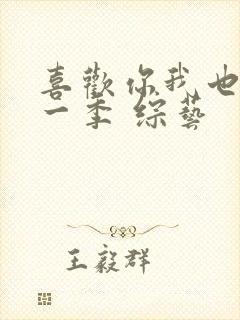 喜歡你我也
一季 綜藝
王毅群